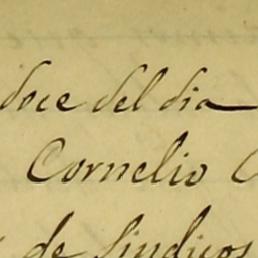 doce del dia
Cornelio
de Sindicos